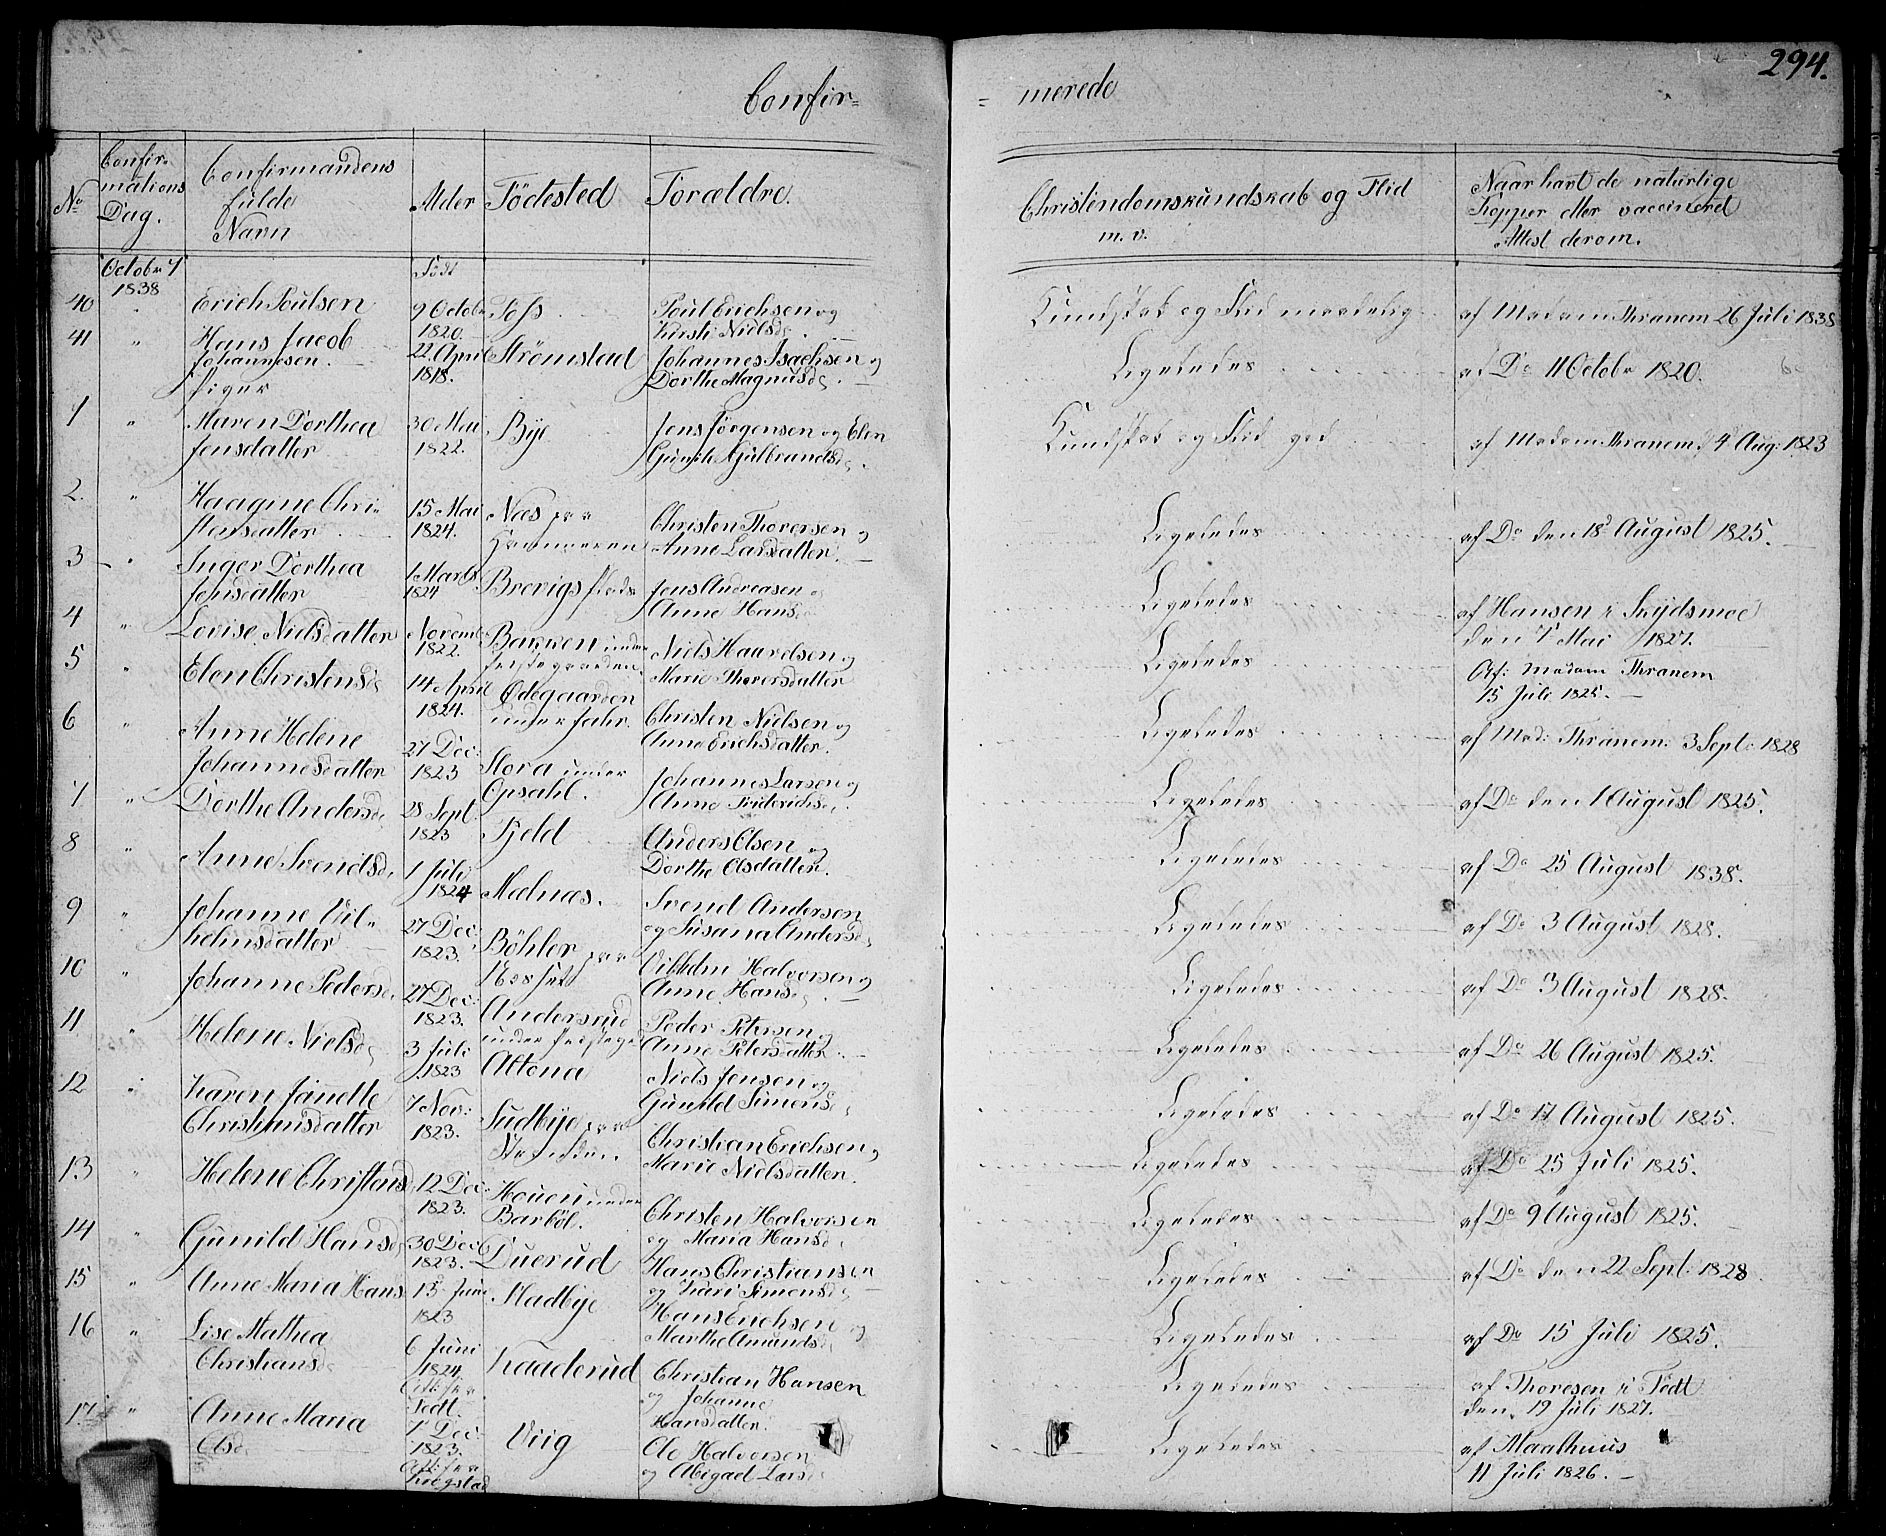 294.
Confir= = merede
No
Confir-
mations
Dag.
Confirmandens
fulde
Navn
Alder
Födested
Forældre.
Christendomskundskab og Flid
m. v.
Naar havt de naturlige
Kopper eller vaccineret
Attest derom.
Octobr 7
1838
Födt
40 " Erich Poulsen 9 Octobr Foss Poul Erichsen og Kundskab og Flid maadelig af Madam Thranem 26 Juli 1838
1820. Kirsti Nielsd.
41 " Hans Jacob 22 April Strömstad Johannes Isachsen og Ligeledes af Do 11 Octobr 1820.
Johannesen. 1818. Dorthe Magnusd.
Piger
1 " Maren Dorthea 30 Mai Bye Jens Jörgensen og Elen Kundskab og Flid god af Madam Thranem 4 Aug: 1823
Jensdatter 1822. Gulbrandsd.
2. " Haagine Chri- 15 Mai Næs Christen Thoresen og Ligeledes af Do den 18 August 1825.
stensdatter 1824. Anne Larsdatter.
3 " Inger Dorthea 1 Marts Brevigs Jens Andreasen og Ligeledes af Hansen i Skydsmoe
Jensdatter 1824 Anne Hansd. den 7 Mai 1827.
4 " Lovise Nielsdatter Novemb. Bakken under Niels Haavelsen og Ligeledes Af: Madam Thranem
1822. Præstegaarden Marie Thorersdatter 15 Juli 1825.
5 " Elen Christensd. 14 April Ødegaarden Christen Nielsen og Ligeledes af Mad: Thranem 3 Sept. 1828
1824. under Jahr. Anne Erichsdatter.
6 " Anne Helene 27 Dec: Stora under Johannes Larsen og Ligeledes af Do den 1 August 1825.
Johannesdatter 1823 Opsahl. Anne Friderichsd.
7 " Dorthe Andersd. 28 Sept. Fjeld Anders Olsen og Ligeledes af Do 25 August 1838.
1823 Dorthe Olsdatter.
8 " Anne Svendsd. 1 Juli Mælnæs. Svend Andersen Ligeledes af Do 3 August 1828.
1824 og Susana Andersd.
9 " Johanne Vil- 27 Dec: Böhler Vilhelm Halvorsen og Ligeledes af Do 3 August 1828.
helmsdatter 1823. Anne Hansd.
10 " Johanne Pedersd. 27 Dec: Andersrud Peder Petersen og Ligeledes af Do 26 August 1825.
1823. under Anne Petersdatter
11 " Helene Nielsd. 3 Juli Altona Niels Jensen og Ligeledes af Do 17 August 1825.
1823 Gunild Simensd.
12 " Karen Janette 7 Nov: Sudbye Christian Erichsen og Ligeledes af Do 25 Juli 1825.
Christiansdatter 1823. Marie Nielsdatter.
13 " Helene Christensd 12 Dec: Houen under Christen Halvorsen Ligeledes af Do 9 August 1825.
1823. Barböl. og Maria Hansd.
14 " Gunild Hansd. 30 Dec Duerud Hans Christiansen Ligeledes af Do den 22 Sept. 1828
1823. og Kari Simensd.
15 " Anne Maria Hans. 13 Juni Stadbye Hans Erichsen og Ligeledes af Do 15 Juli 1825.
1823 Marthe Amundsd.
16 " Lise Mathea 6 Juni Kaaderud Christian Hansen Ligeledes af Thoresen i Födt
Christiansd. 1824. og Johanne den 19 Juli 1827.
Hansdatter.
17 " Anne Maria 1 Dec: Viig Ole Halvorsen Ligeledes af Maalhuus
Olsd. 1823. og Abigael Larsd. 11 Juli 1826.
Krogstad